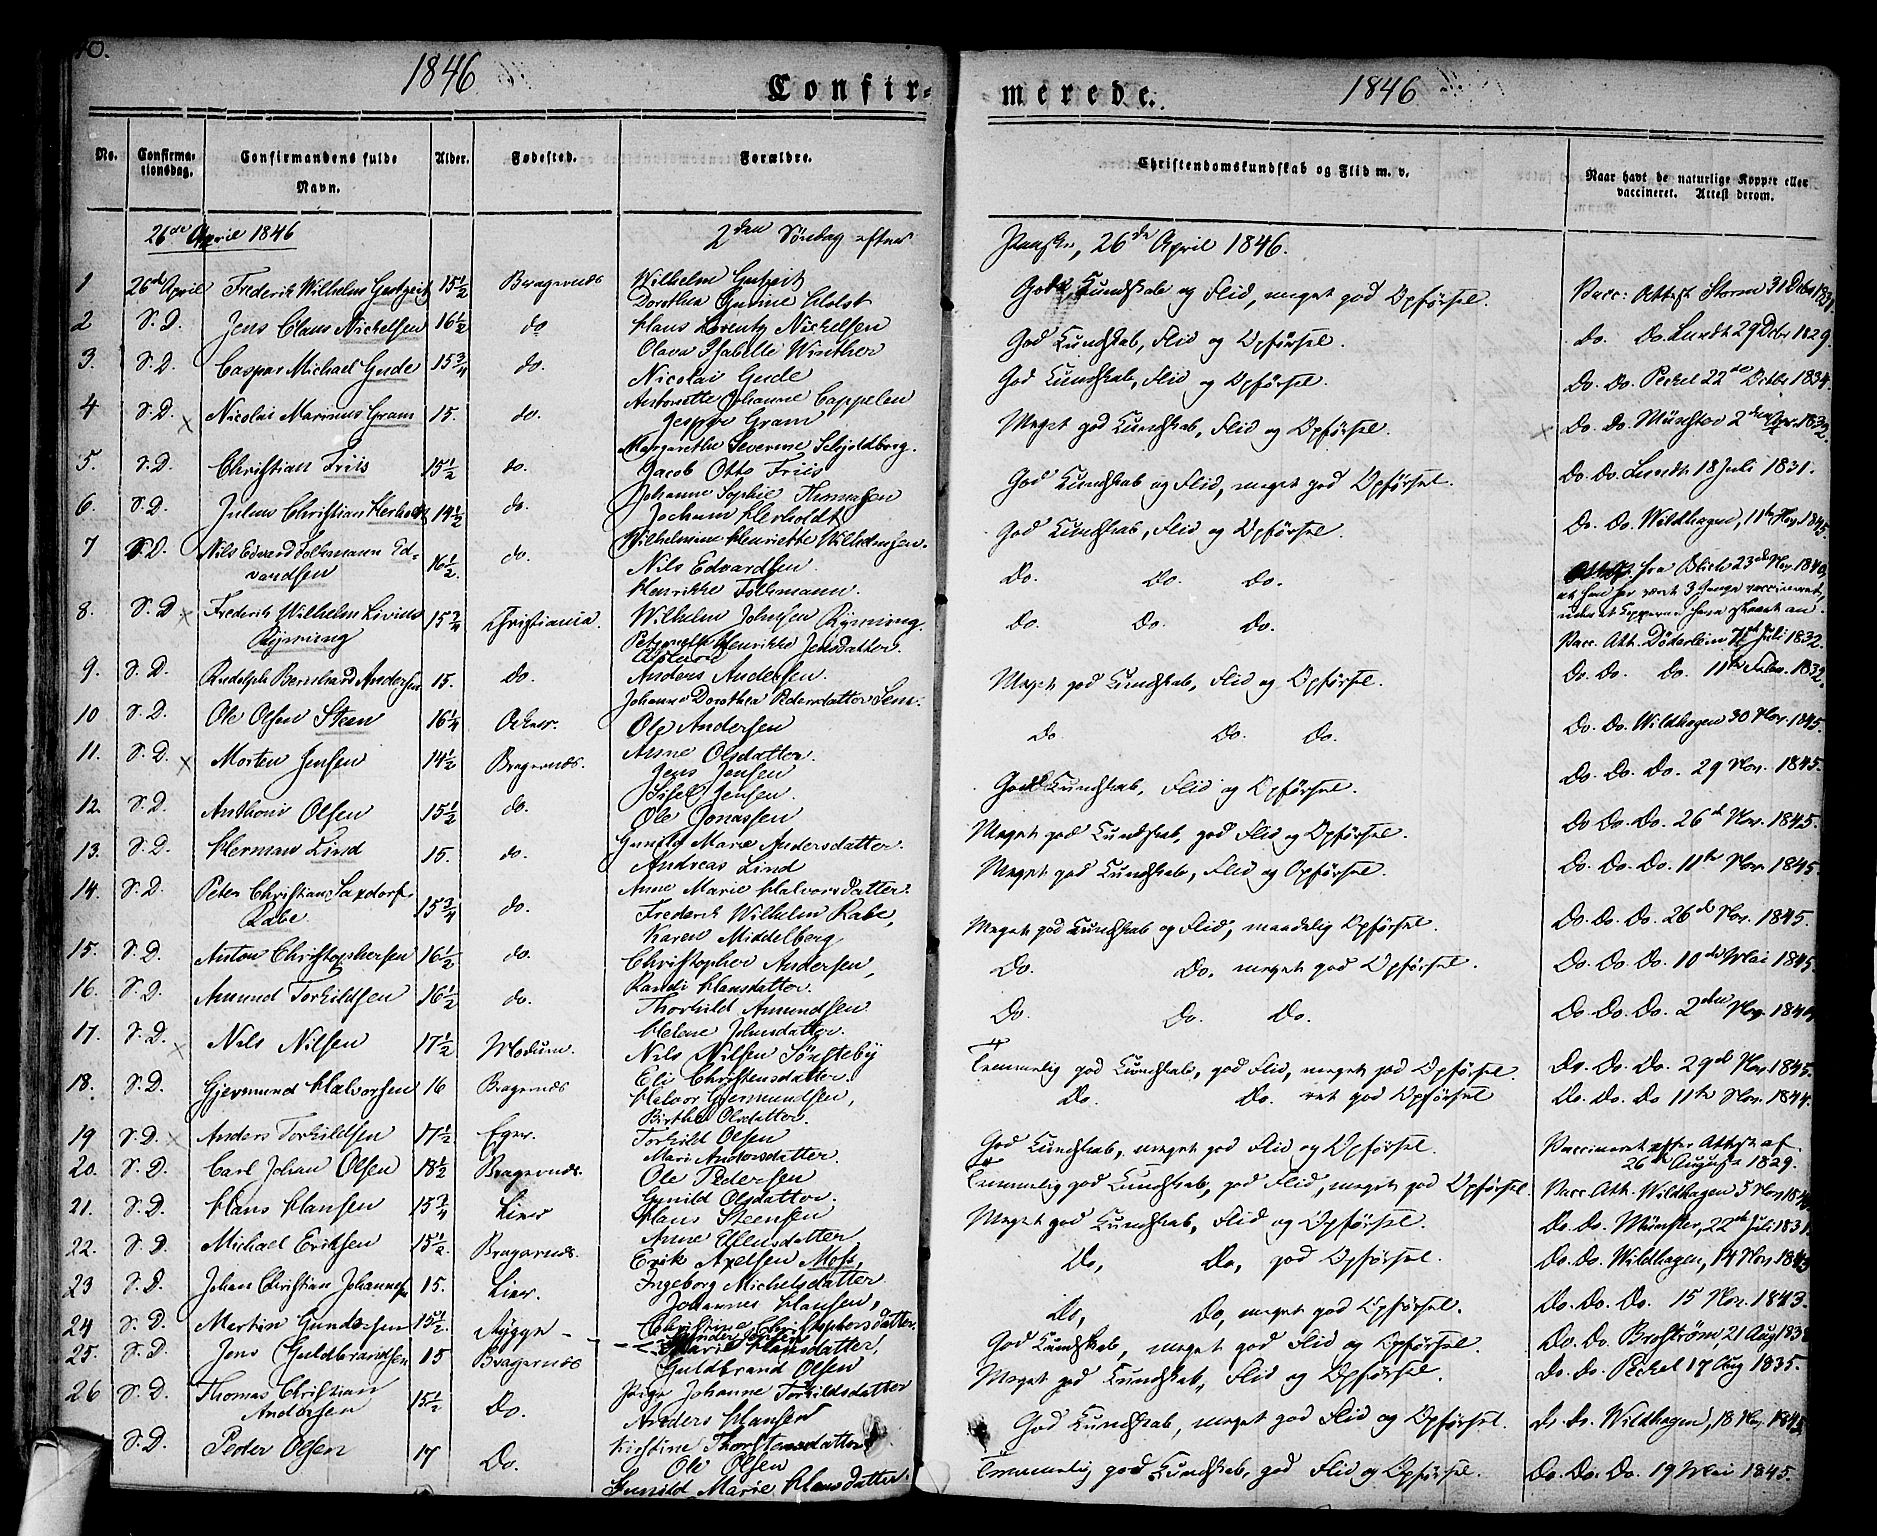 1846
Confir-
No.
Confirma-
tionsdag.
Confirmandens fulde
Navn.
Alder.
Fødested.
Forældre.
26de April 1846
2den Søndag efter
1 26de April Frederik Wilhelm Gutzeit 15½ Bragernæs Wilhelm Gutzeit
Dorothea Gurine Holst
2 S. D. Jens Claus Nichelsen 16½ do Hans Lorentz Nichelsen
Olava Isabelle Winther
3. S. D. Caspar Michael Gude 15¾ do. Nicolai Gude
Antonette Johanne Cappelen
4 S. D. Nicolai Marinus Gram 15. do. Jesper Gram
Margarethe Severine Schjoldborg.
5. S. D. Christian Friis 15½ do. Jacob Otto Friis
Johanne Sophie Thomasen
6. S. D. Julius Christian Herholdt 14½ do. Jochum Herholdt
Wilhelmine Henriette Wilhelmsen.
7 S. D. Nils Edvard Folkmann Ed-
vardsen 16½. do. Nils Edvardsen.
Henrikke Folkmann.
8. S. D. Frederik Wilhelm Livius
Rynning 15¾ Christiania. Wilhelm Johnsen Rynning.
Petronelle Henrikke Jensdatter.
9. S. D. Rudolph Bernhard Andersen 15. do. Anders Andersen.
Johanne Dorothea Pedersdatter Sem.
10 S. D. Ole Olsen Steen 16¼ Asker. Ole Andersen
Anne Olsdatter.
11. S. D. Morten Jensen 14½ Bragernæs. Jens Jensen
Sisel Jensen.
12. S. D. Anthoni Olsen 15½ do. Ole Jonassen
Gunild Marie Andersdatter.
13. S. D. Herman Lind 15. do. Andreas Lind
Anne Marie Halvorsdatter.
14. S. D. Peter Christian Saxdorf
Rabe 15¾ do. Frederik Wilhelm Rabe,
Karen Middelberg
15. S. D. Anton Christophersen 16½ do. Christopher Andersen,
Randi Hansdatter.
16. S. D. Amund Torkildsen 16½ do. Thorkild Amundsen
Helene Johnsdatter.
17. S. D. Nils Nilsen 17½ Modum. Nils Nilsen Sønsteby
Eli Christensdatter.
18. S. D. Gjermund Halvorsen 16 Bragernæs Halvor Gjermundsen,
Birthe Olsdatter.
19 S. D. Anders Torkildsen 17½ Eger. Torkild Olsen
Mari Andersdatter.
20. S. D. Carl Johan Olsen 18½ Bragernæs. Ole Pedersen
Gunild Olsdatter.
21. S. D. Hans Hansen 15¾ Lier Hans Steensen
Anne Ellensdatter
22. S. D. Michael Eriksen 15½. Bragernæs. Erik Axelsen Moss,
Ingeborg Michelsdatter
23 S. D. Johan Christian Johannesen 15. Lier. Johannes Hansen,
Christine Christophersdatter.
24 S. D. Martin Gundersen 15½ Røgge Gunder
Marie Hansdatter.
25. S. D. Jens Guldbrandsen 15 Bragernæs Guldbrand Olsen
Johanne Torkildsdatter
26 S. D. Thomas Christian
Andersen 15½ Do. Anders Hansen
Kirstine Thorstensdatter
S. D. Peder Olsen 17 Do. Ole Olsen
Gunild Marie Hansdatter.
merede.
1846
Christendomskundskab og Flid m. v.
Naar havt de naturlige Kopper eller
vaccineret. Attest derom.
Paaske, 26de April 1846.
God Kundskab og Flid, meget god Opførsel. Vacc: Attest Storm 31 Decbr
God Kundskab, Flid og Opførsel. do. Do. Lundt 29 Dcbr 1829.
God Kundskab, Flid og Opførsel. Do. Do. Peckel 22de Octbr 1834.
Meget god Kundskab, Flid og Opførsel. Do. Do. Münster 2den 1832.
God Kundskab og Flid, meget god Opførsel. Do. Do. Lundt 18 Juli 1831.
God Kundskab, Flid og Opførsel. Do. Do. Wildhagen, 11te Nov. 1845.
Do. Do. Do. fra Blich 23de Nov 1840,
at han har vært 3 Gange vaccineret,
uden at Kopperne have slaaet an.
Do. Do. Do. Vacc. Att. Döderlein Juli 1832.
Meget god Kundskab, Flid og Opførsel. Do. Do. Do. 11te Febr. 1832.
do Do. Do. Do. Do. Wildhagen 30 Nov. 1845.
God Kundskab, Flid og Opførsel. Do. Do. Do. 29 Nov. 1845.
Meget god Kundskab, god Flid og Opførsel. Do. Do. Do. 26de Nov. 1845.
Meget god Kundskab, Flid og Opførsel. Do. Do. Do. 11te Nov. 1845.
Meget god Kundskab og Flid, maadelig Opførsel. Do. Do. Do. 26de Nov. 1845.
Do. Do. meget god Opførsel. Do. Do. Do. 10de Mai 1845.
Do. Do. Do. Do. Do. Do. 2den Nov 1844.
Temmelig god Kundskab, god Flid, meget god Opførsel. Do. Do. Do. 29de Nov 1845.
Do. Do. ret god Opførsel Do. Do. Do 11te Nov. 1844.
God Kundskab, meget god Flid og Opførsel. Vaccineret efter Attest af
26de August 1829.
Temmelig god Kundskab, god Flid, meget god Opførsel. Vacc. Att. Wildhagen 5 Nov
Meget god Kundskab, Flid og Opførsel. Do. Do. Münster, 22de Juli 1831.
Do, Do, god Opførsel. Do. Do. Wildhagen, 14 Nov
Do, Do, meget god Opførsel. Do. Do. Do. 15 Nov. 1843.
God Kundskab, meget god Flid og Opførsel. Do. Do. Broström, 21 Aug
Meget god Kundskab, Flid og Opførsel. Do. Do. Peckel 17 Aug 1835.
God Kundskab, meget god Flid og Opførsel. Do Do. Wildhagen, 18 Nov. 1845
Temmelig god Kundskab, god Flid og Opførsel. Do. Do. Do. 19 Mai 1845.